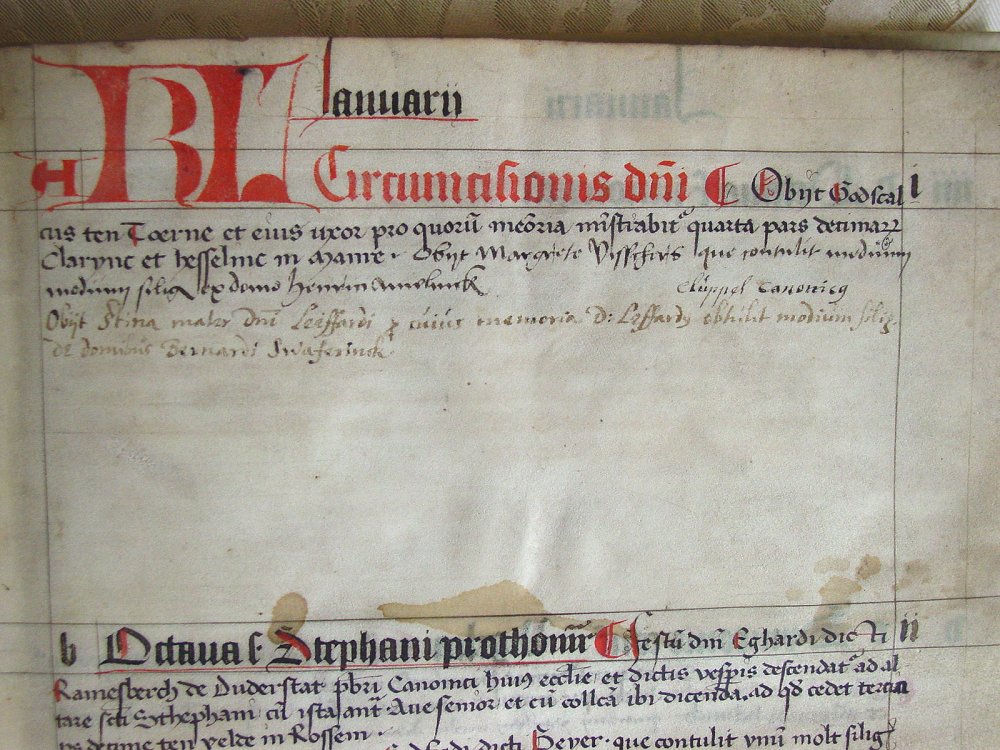 KL Januarii
A Circumcisionis dñi Obijt Godscal i
cus ten Toerne et eius uxor pro quorũ meõria mĩstrabit quarta pars decimarũ
Clarync et hesselinc in Manre. Obijt Margrete Visschers que contulit medium
modium silig ex domo Henrici
Clüppel Canonicg
Obijt Stina mater Dñi Leiffardi p cuius memoria D: Leffardg obtulit modium silig
de domibus Bernardi Swaferinck
b Octava s. Stephani prothomr̃ festũ dñi Eghardi dicti ii
Ramesberch de Duderstat pbri Canonici huius ecclie et dictis vesp̃is descendat ad al
tare scti Sthephani cũ ista ant. Ave senior et cũ collcã ibi dicenda. ad qd cedet tercia
ps decime ten velde in Rossem.
dicti Beyer. que contulit vnũ molt silig